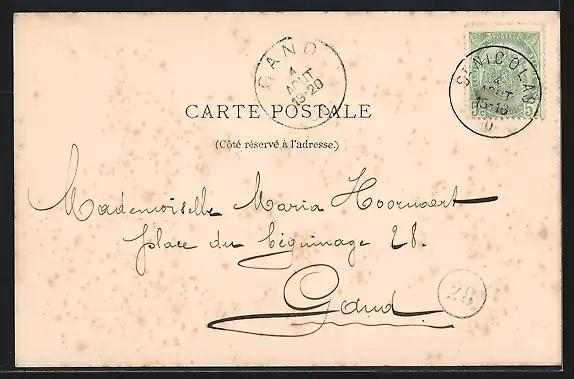 GAND
4
AOUT
19-20
ST NICOLAS
4
AOUT
15-16
0
5c 5c
CARTE POSTALE
(Côté réservé à l'adresse.)
Mademoiselle Maria Hoornaert
place du béguinage 28.
Gand
28